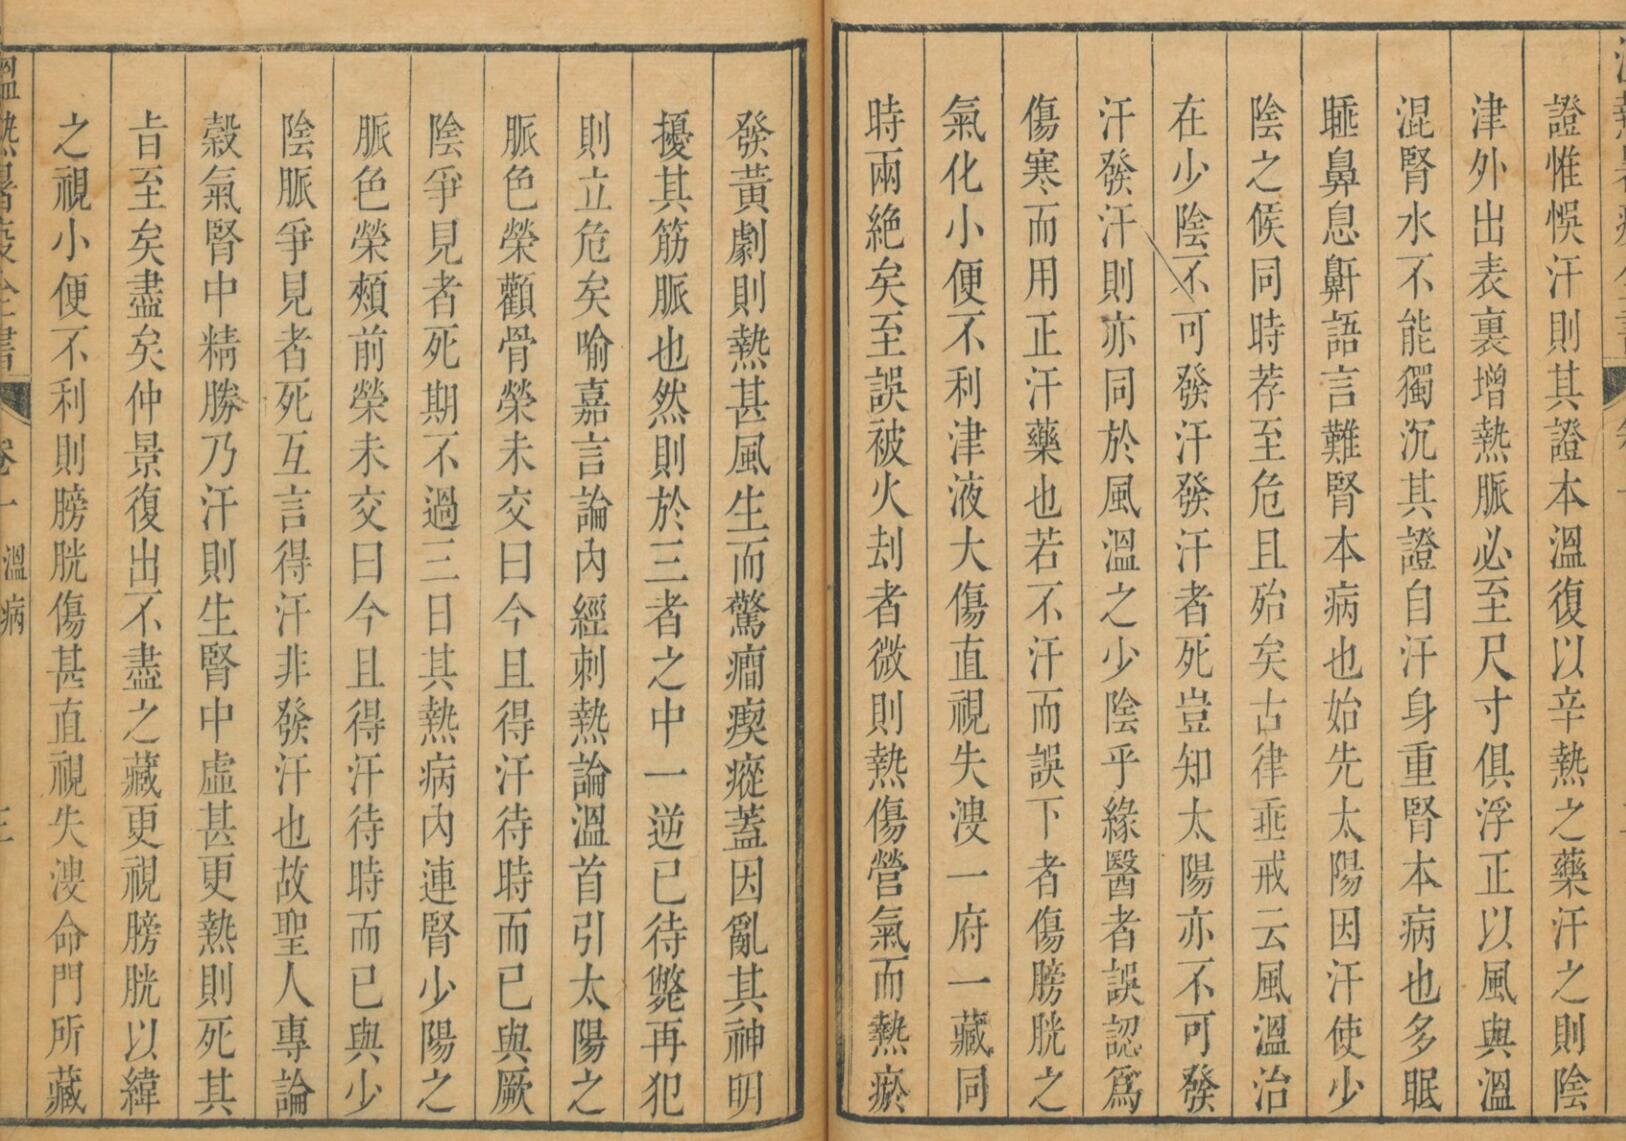 證惟悞汗則其證本溫復以辛熱之藥汗之則陰
津外出表裏增熱脈必至尺寸俱浮正以風與溫
混腎水不能獨沉其證自汗身重腎本病也多眠
睡鼻息鼾語言難腎本病也始先太陽因汗使少
陰之候同時荐至危且殆矣古律垂戒云風溫治
在少陰不可發汗發汗者死豈知太陽亦不可發
汗發汗則亦同於風溫之少陰乎緣醫者誤認爲
傷寒而用正汗藥也若不汗而誤下者傷膀胱之
氣化小便不利津液大傷直視失溲一府一藏同
時兩絕矣至誤被火刦者微則熱傷營氣而熱瘀
發黃劇則熱甚風生而驚癎瘈瘲蓋因亂其神明
擾其筋脈也然則於三者之中一逆已待斃再犯
則立危矣喻嘉言論內經刺熱論溫首引太陽之
脈色榮顴骨榮未交曰今且得汗待時而已與厥
陰爭見者死期不過三日其熱病內連腎少陽之
脈色榮頰前榮未交曰今且得汗待時而已與少
陰脈爭見者死互言得汗非發汗也故聖人專論
穀氣腎中精勝乃汗則生腎中虛甚更熱則死其
旨至矣盡矣仲景復出不盡之藏更視膀胱以緯
之視小便不利則膀胱傷甚直視失溲命門所藏
溫熱暑疫全書 卷一 溫病 三